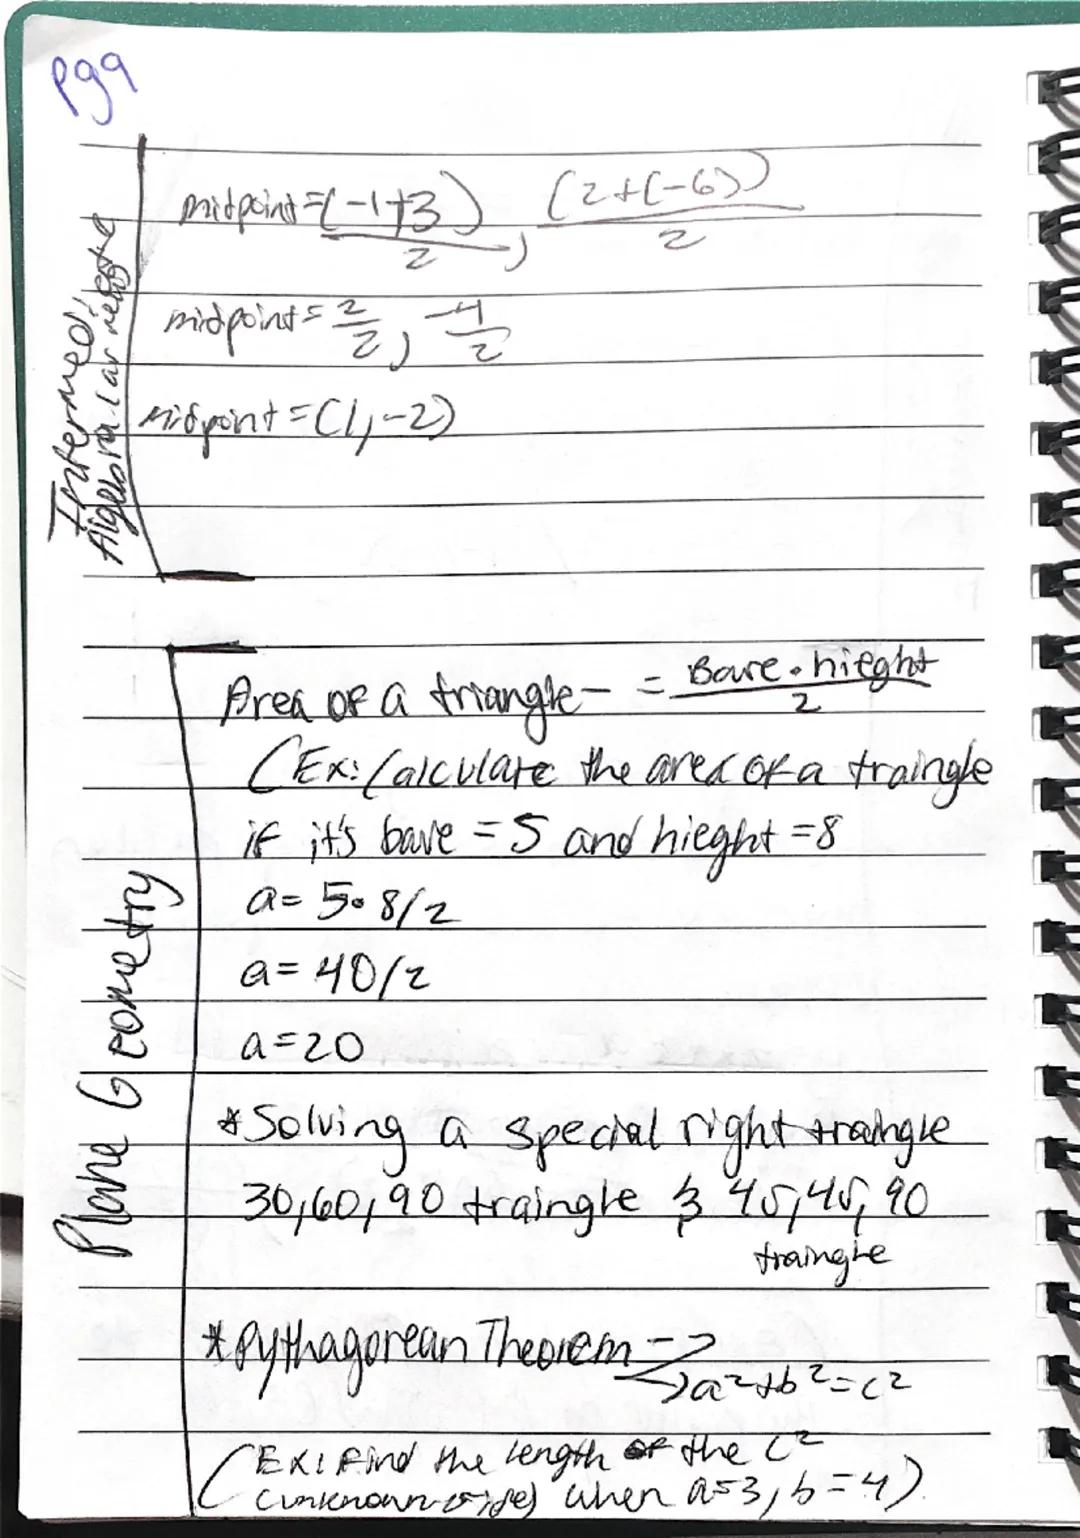 pg9
midpoint=(-1+3)/2, (2+(-6))/2
midpoint=2/2, -4/2
midpoint=(1,-2)
Intermediate
Algebra
Area of a triangle- = Base • hieght / 2
(Ex: Calculate the area of a traingle
if it's base =5 and hieght =8
a= 5•8/2
a= 40/2
a=20
Plane Geometry
*Solving a special right traingle
30,60,90 traingle & 45,45,90
traingle
*Pythagorean Theorem ->
->a²+b²=c²
(Ex: Find the length of the c²
(unknown side) when a=3, b=4)